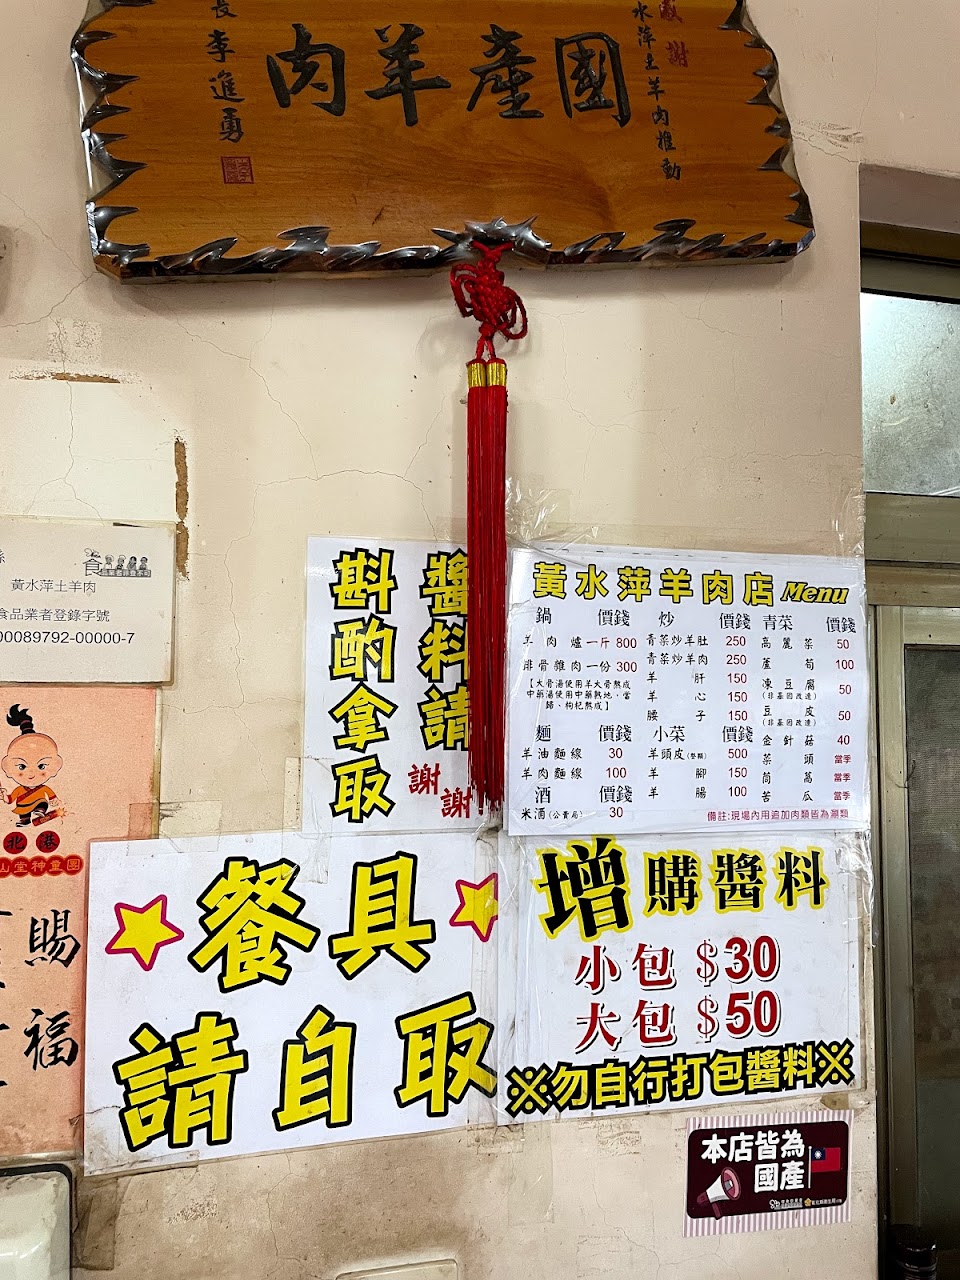 國產羊肉
感謝
水萍土羊肉推動
長李進勇
黃水萍土羊肉
食品業者登錄字號
00089792-00000-7
醬料請
斟酌拿取
謝謝
黃水萍羊肉店 Menu
鍋 價錢
羊肉爐一斤 800
排骨雜肉一份 300
【大骨湯使用羊大骨熬成
中藥湯使用中藥熟地、當
歸、枸杞熬成】
麵 價錢
羊油麵線 30
羊肉麵線 100
酒 價錢
米酒(公賣局) 30
炒 價錢
青菜炒羊肚 250
青菜炒羊肉 250
羊肝 150
羊心 150
腰子 150
小菜 價錢
羊頭皮(整顆) 500
羊腳 150
羊腸 100
青菜 價錢
高麗菜 50
蘆筍 100
凍豆腐 50
(非基因改造)
豆皮 50
(非基因改造)
金針菇 40
菜頭 當季
茼蒿 當季
苦瓜 當季
備註:現場內用追加肉類皆為涮類
北港
山堂神童團
賜福
餐具
請自取
增購醬料
小包 $30
大包 $50
※勿自行打包醬料※
本店皆為
國產